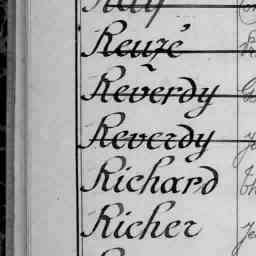 Reuzé
Reverdy
Reverdy
Richard
Richer